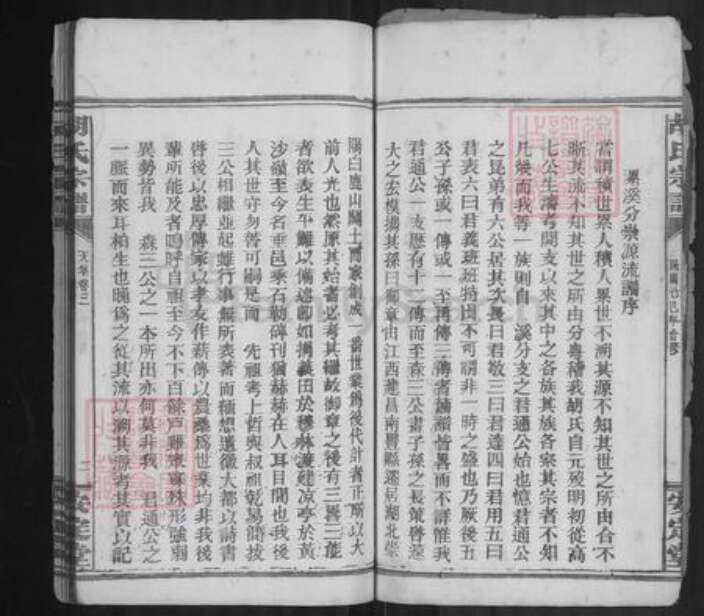 羅溪分樂源流譜序
嘗謂積世累人積人累世不溯其源不知其世之所由合不
晰其流不知其世之所由分粵稽我胡氏自元歿明初從高
七公生濤考開支以來其中之各族其族各宗其宗者不知
凡幾而我等一族則自 溪分支之君通公始也憶君通公
之昆弟有六公居其次長曰君敬三曰君達四曰君用五曰
君表六曰君義班班指出不可謂非一時之盛也乃厥後五
公子孫或一傳或一至再傳三傳者譜牒皆畧而不詳惟我
君通公一支歷有十一傳而至森三公畫子孫之長策啓後
人之宏模擕其孫曰御章由江西建昌南豐縣遷居湖北崇
陽白鹿山闢土而家創成一番世業為後代計者正所以大
前人光也然原其始者必考其繼故御章之後有三畧三能
者欲表生平難以備述即如捐義田於樓林渡建凉亭於黄
沙嶺至今名垂邑乘石勒碑刊猶赫赫在人耳目間也我後
人其世守勿替可嗣是而 先祖考上哲與叔祖彭易簡拔
三公相繼並起雖行事無所表著而緬想遺徽大都以詩書
啓後以忠厚傳家以孝友作薪傳以農桑為世業均非我後
輩所能及者嗚呼自祖至今不下百餘户雖衆寡殊形強弱
異勢皆我 森三公之一本所出亦何莫非我 君通公之
一脈而來耳柏生也晚為之從其流以溯其源考其實以記
胡氏宗譜
天集卷三
二
安定堂